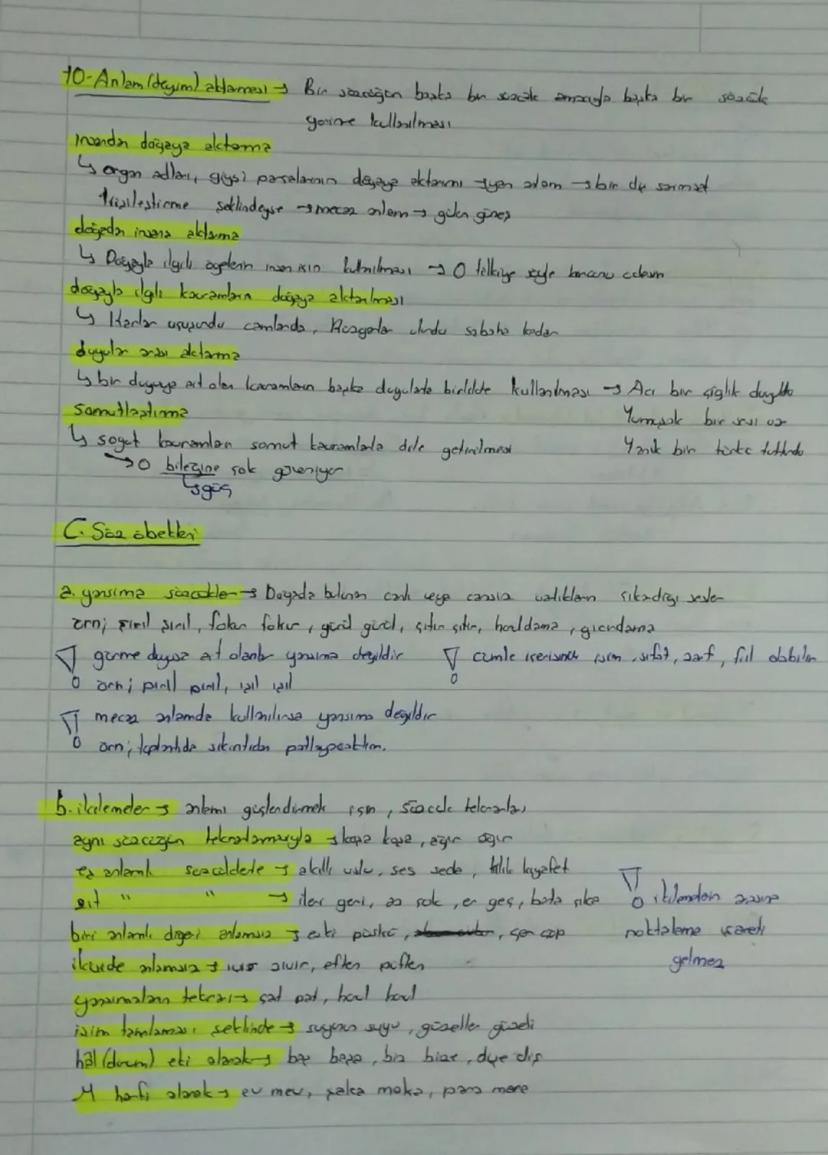 10-Anlam (deyim) aktarması → Bir sözcüğün başka bir sözcük amacıyla başka bir sözcük
yerine kullanılması
insandan doğaya aktarma
↳ organ adları, giysi parçalarının doğaya aktarımı → yan anlam → bir de
kişileştirme şeklindeyse → mecaz anlam → gülen güneş
doğadan insana aktarma
↳ Doğayla ilgili ögelerin insan için kullanılması → O tilkiye söyle
doğayla ilgili kavramların doğaya aktarılması
↳ Karlar uçuşurdu camlarda, Rüzgarlar uludu sabaha kadar
duyular arası aktarma
↳ bir duyuya ait olan kavramların başka duyularla birlikte kullanılması → Acı bir çığlık duyuldu
Yumuşak bir sesi var
Yanık bir türkü tutturdu
somutlaştırma
↳ soyut kavramları somut kavramlarla dile getirilmesi
→ O bileğine çok güveniyor
↳ güç
C. Söz öbekleri
a. yansıma sözcükler → Doğada bulunan canlı veya cansız varlıkların çıkardığı sesler
örn; şırıl şırıl, fokur fokur, gürül gürül, çıtır çıtır, horuldama, gıcırdama
görme duyusuna ait olanlar yansıma değildir
cümle içerisinde isim, sıfat, zarf, fiil olabilir
örn; pırıl pırıl, ışıl ışıl
mecaz anlamda kullanılırsa yansıma değildir
örn; toplantıda sıkıntıdan patlayacaktım.
b. ikilemeler → anlamı güçlendirmek için, sözcük tekrarları
aynı sözcüğün tekrarlanmasıyla → kapı kapı, ağır ağır
eş anlamlı sözcüklerle → akıllı uslu, ses seda, kılık kıyafet
zıt " " → ileri geri, az çok, er geç, bata çıka
ikilemelerin arasına
noktalama işareti
gelmez
biri anlamlı diğeri anlamsız → eski püskü, çer çöp
ikiside anlamsız → ıvır zıvır, eften püften
yansımaların tekrarı → çat pat, horul horul
isim tamlaması şeklinde → suyunun suyu, güzeller güzeli
hâl (durum) eki alarak → baş başa, biz bize, dişe diş
M harfi alarak → ev mev, şaka maka, para mara